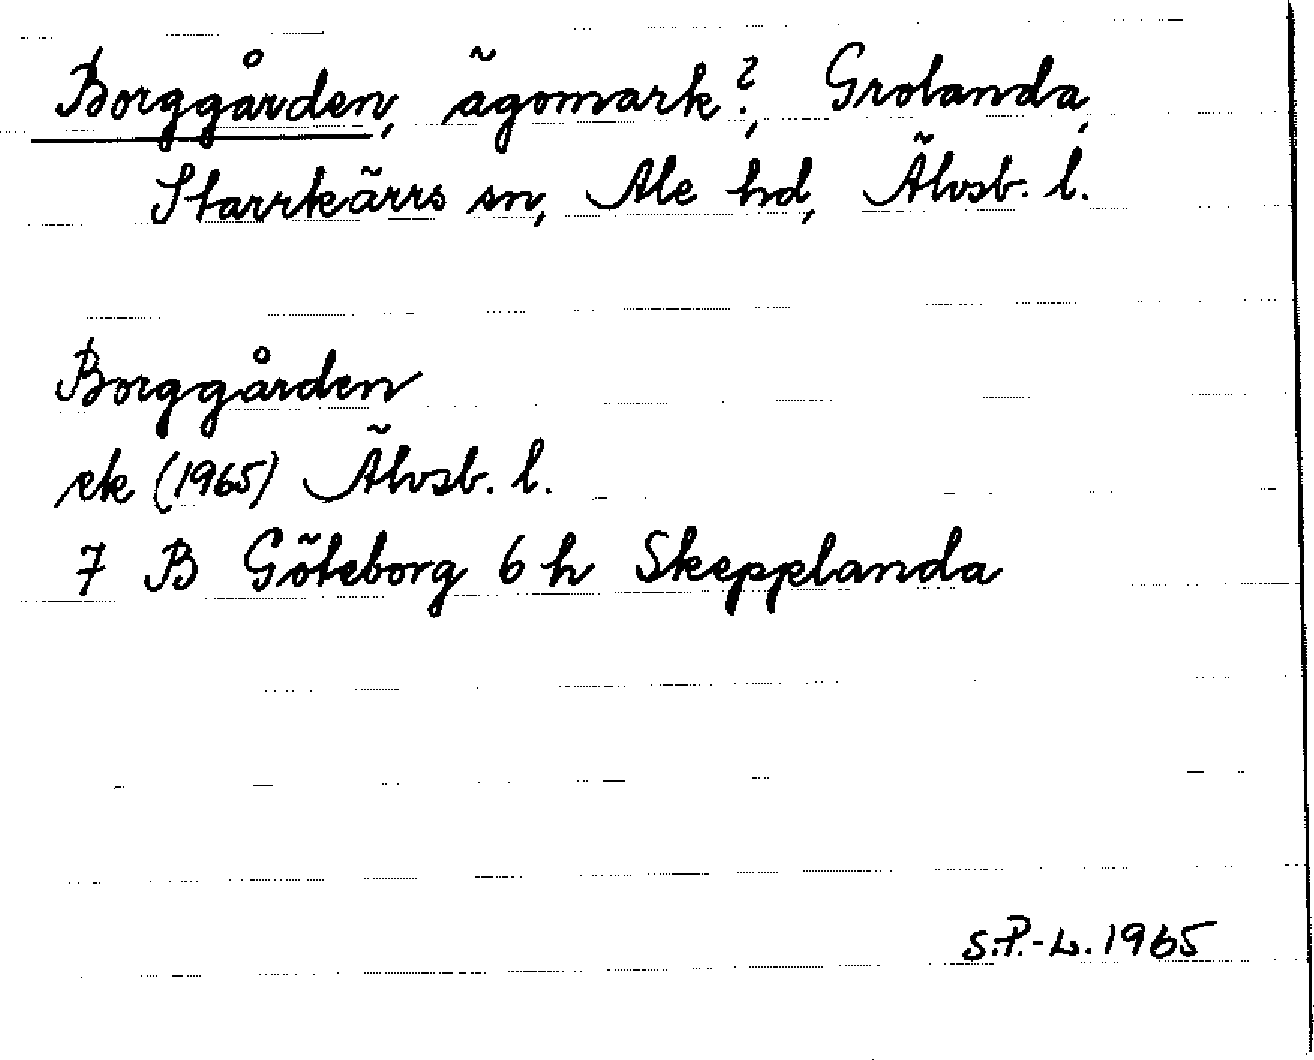 Borggården, ägomark?, Grolanda,
Starrkärrs sn, Ale hd, Älvsb. l.
Borggården
ek (1965) Älvsb. l.
7 B Göteborg 6 h Skepplanda
S.P.-L. 1965